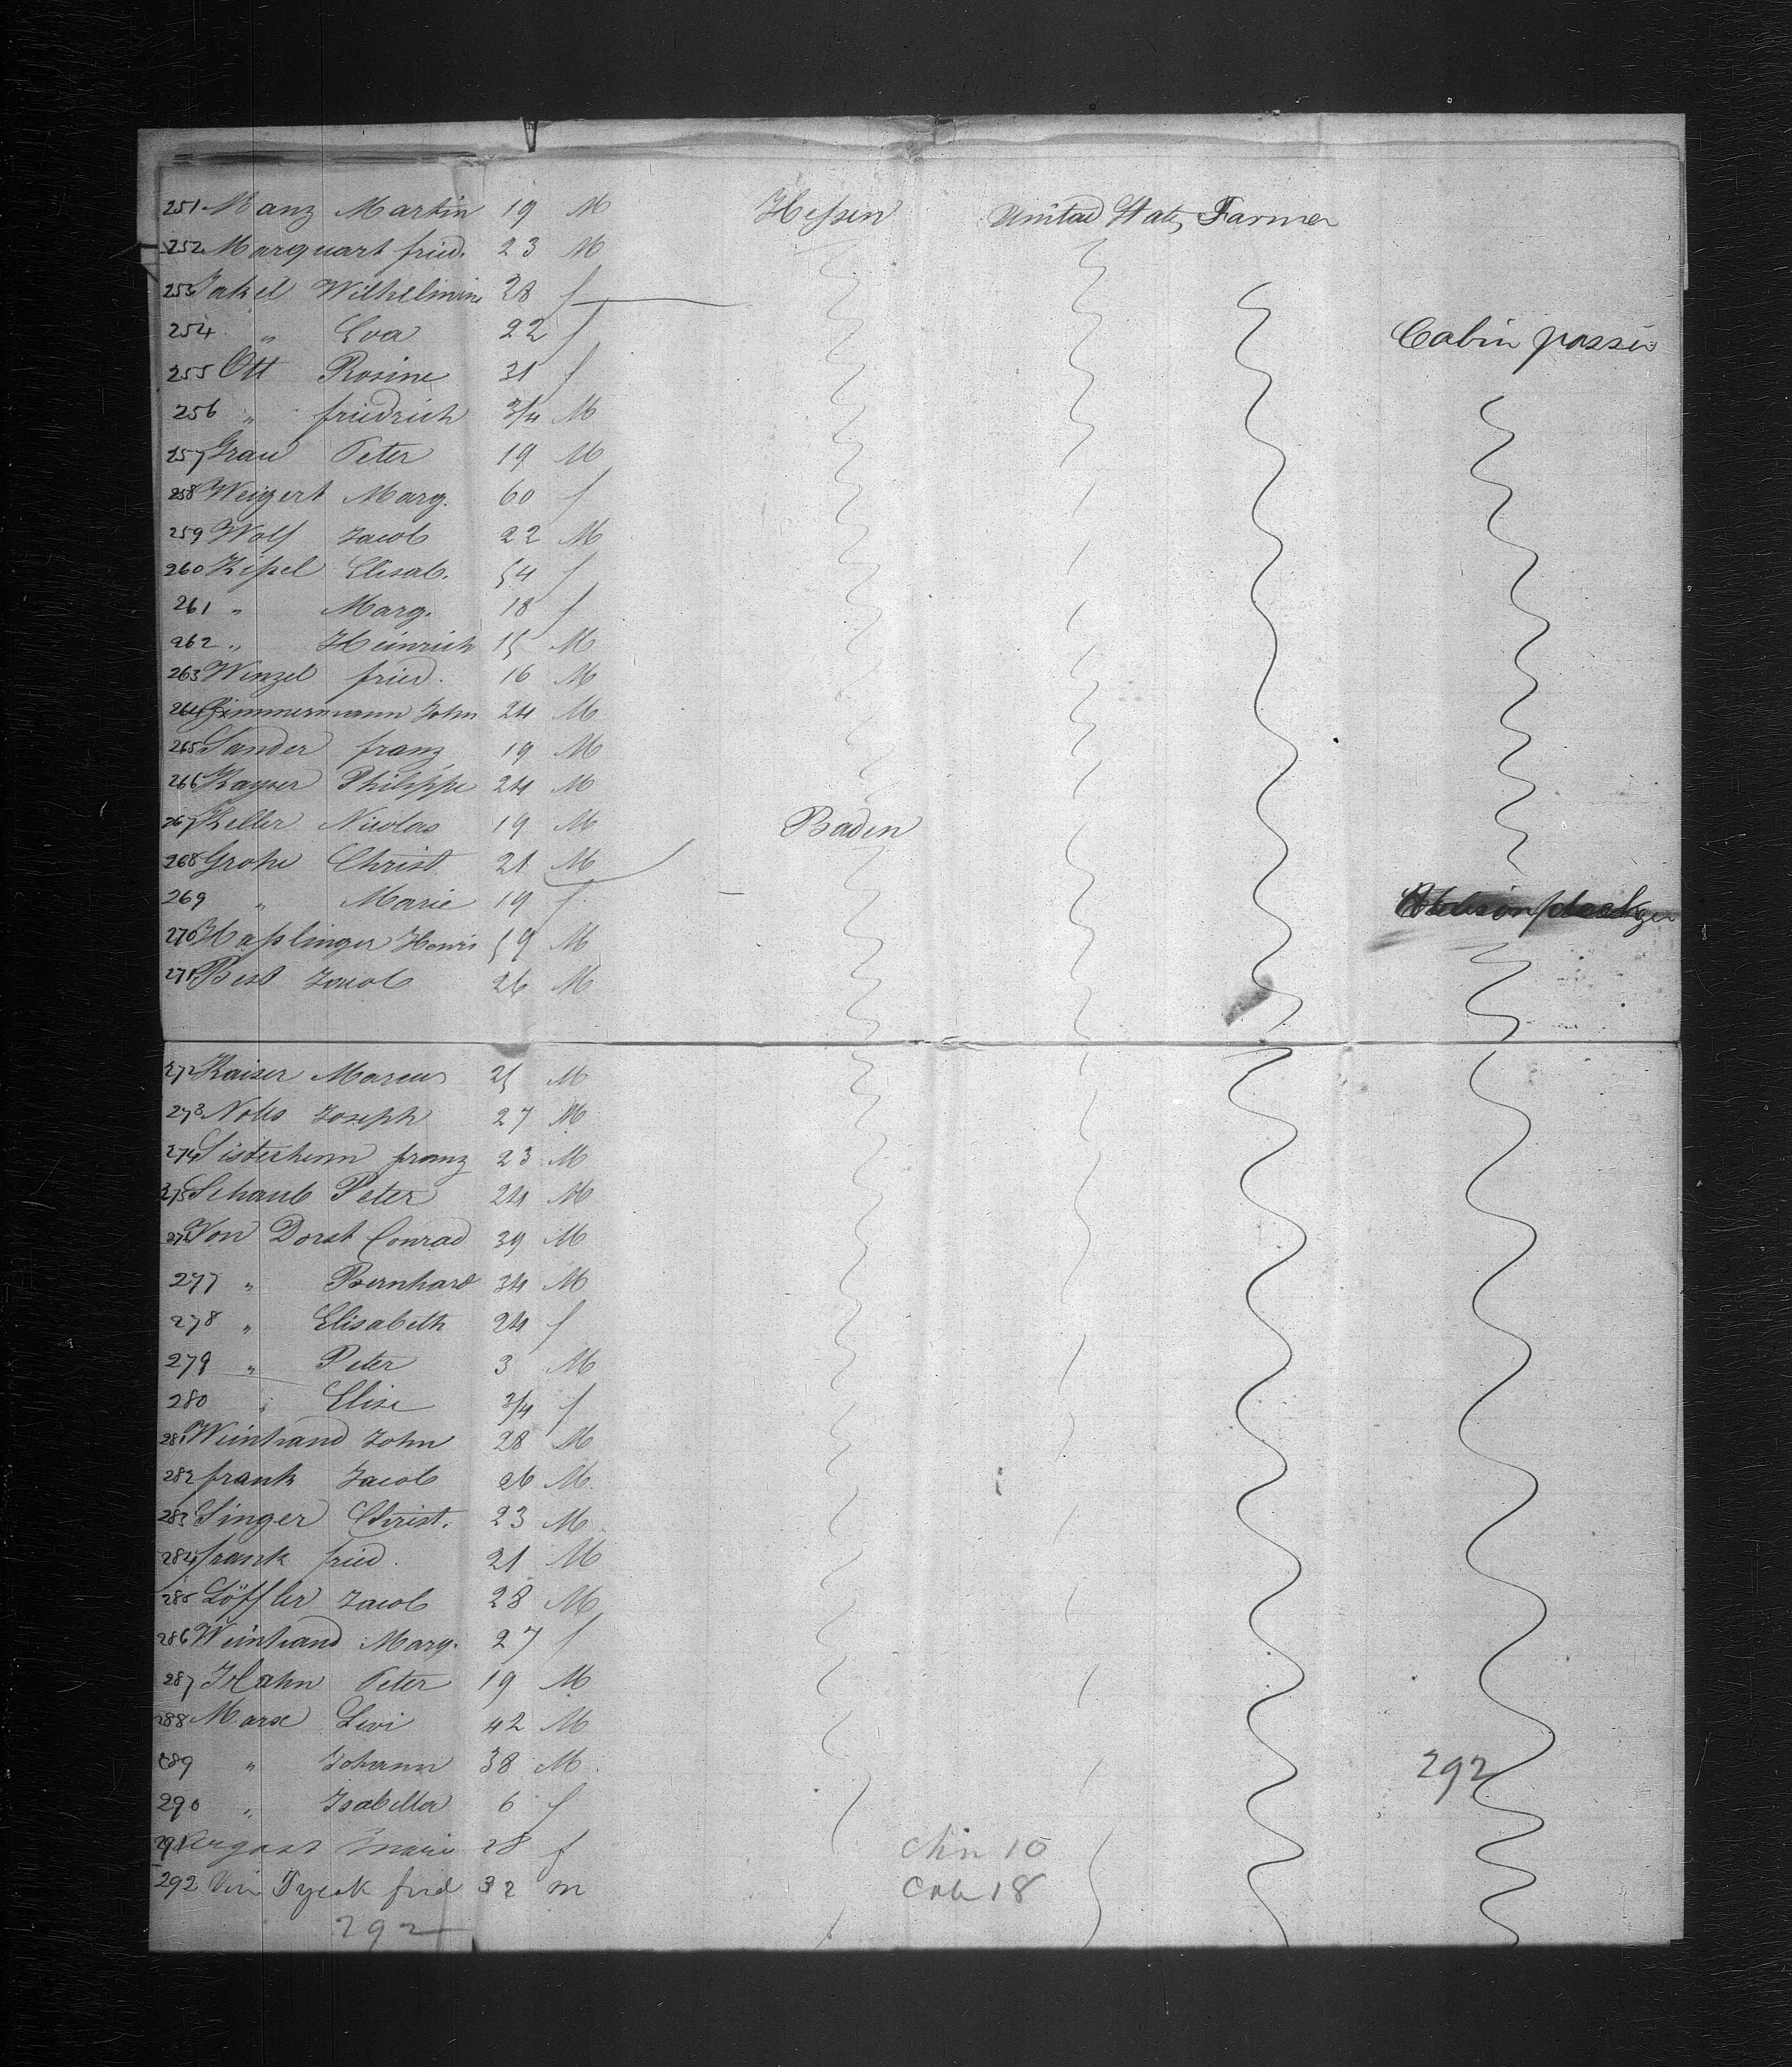 251 Manz Martin 19 M Hessen United States Farmer
252 Marquart fried. 23 M
253 Jakel Wilhelmine 28 f
254 " Eva 22 f Cabin passen
255 Ott Rosine 31 f
256 " friedrich 3/4 M
257 Grau Peter 19 M
258 Weigert Marg. 60 f
259 Wolf Jacob 22 M
260 Kißel Elisab. 54 f
261 " Marg. 18 f
262 " Heinrich 15 M
263 Wenzel fried. 16 M
264 Zimmermann John 24 M
265 Sander franz 19 M
266 Kayser Philippe 24 M
267 Keller Nicolas 19 M Baden
268 Grohe Christ 21 M
269 " Marie 19 f
270 Haßlinger Henri 59 M
271 Best Jacob 26 M
272 Kaiser Marcus 25 M
273 Joseph 27 M
274 franz 23 M
275 Schaub Peter 24 M
276 Von Dorst Conrad 39 M
277 " Bernhard 34 M
278 " Elisabeth 24 f
279 " Peter 3 M
280 " Elise 3/4 f
281 Weinhand John 28 M
282 frank Jacob 26 M.
283 Singer Christ. 23 M
284 frank fried. 21 M
285 Löffler Jacob 28 M
286 Weinhand Marg. 27 f
287 Hahn Peter 19 M
288 Marx Levi 42 M
289 " Johann 38 M. 292
290 " Isabella 6 f
291 Marie 28 f Chn 10
292 frid 32 m Cab 18
292